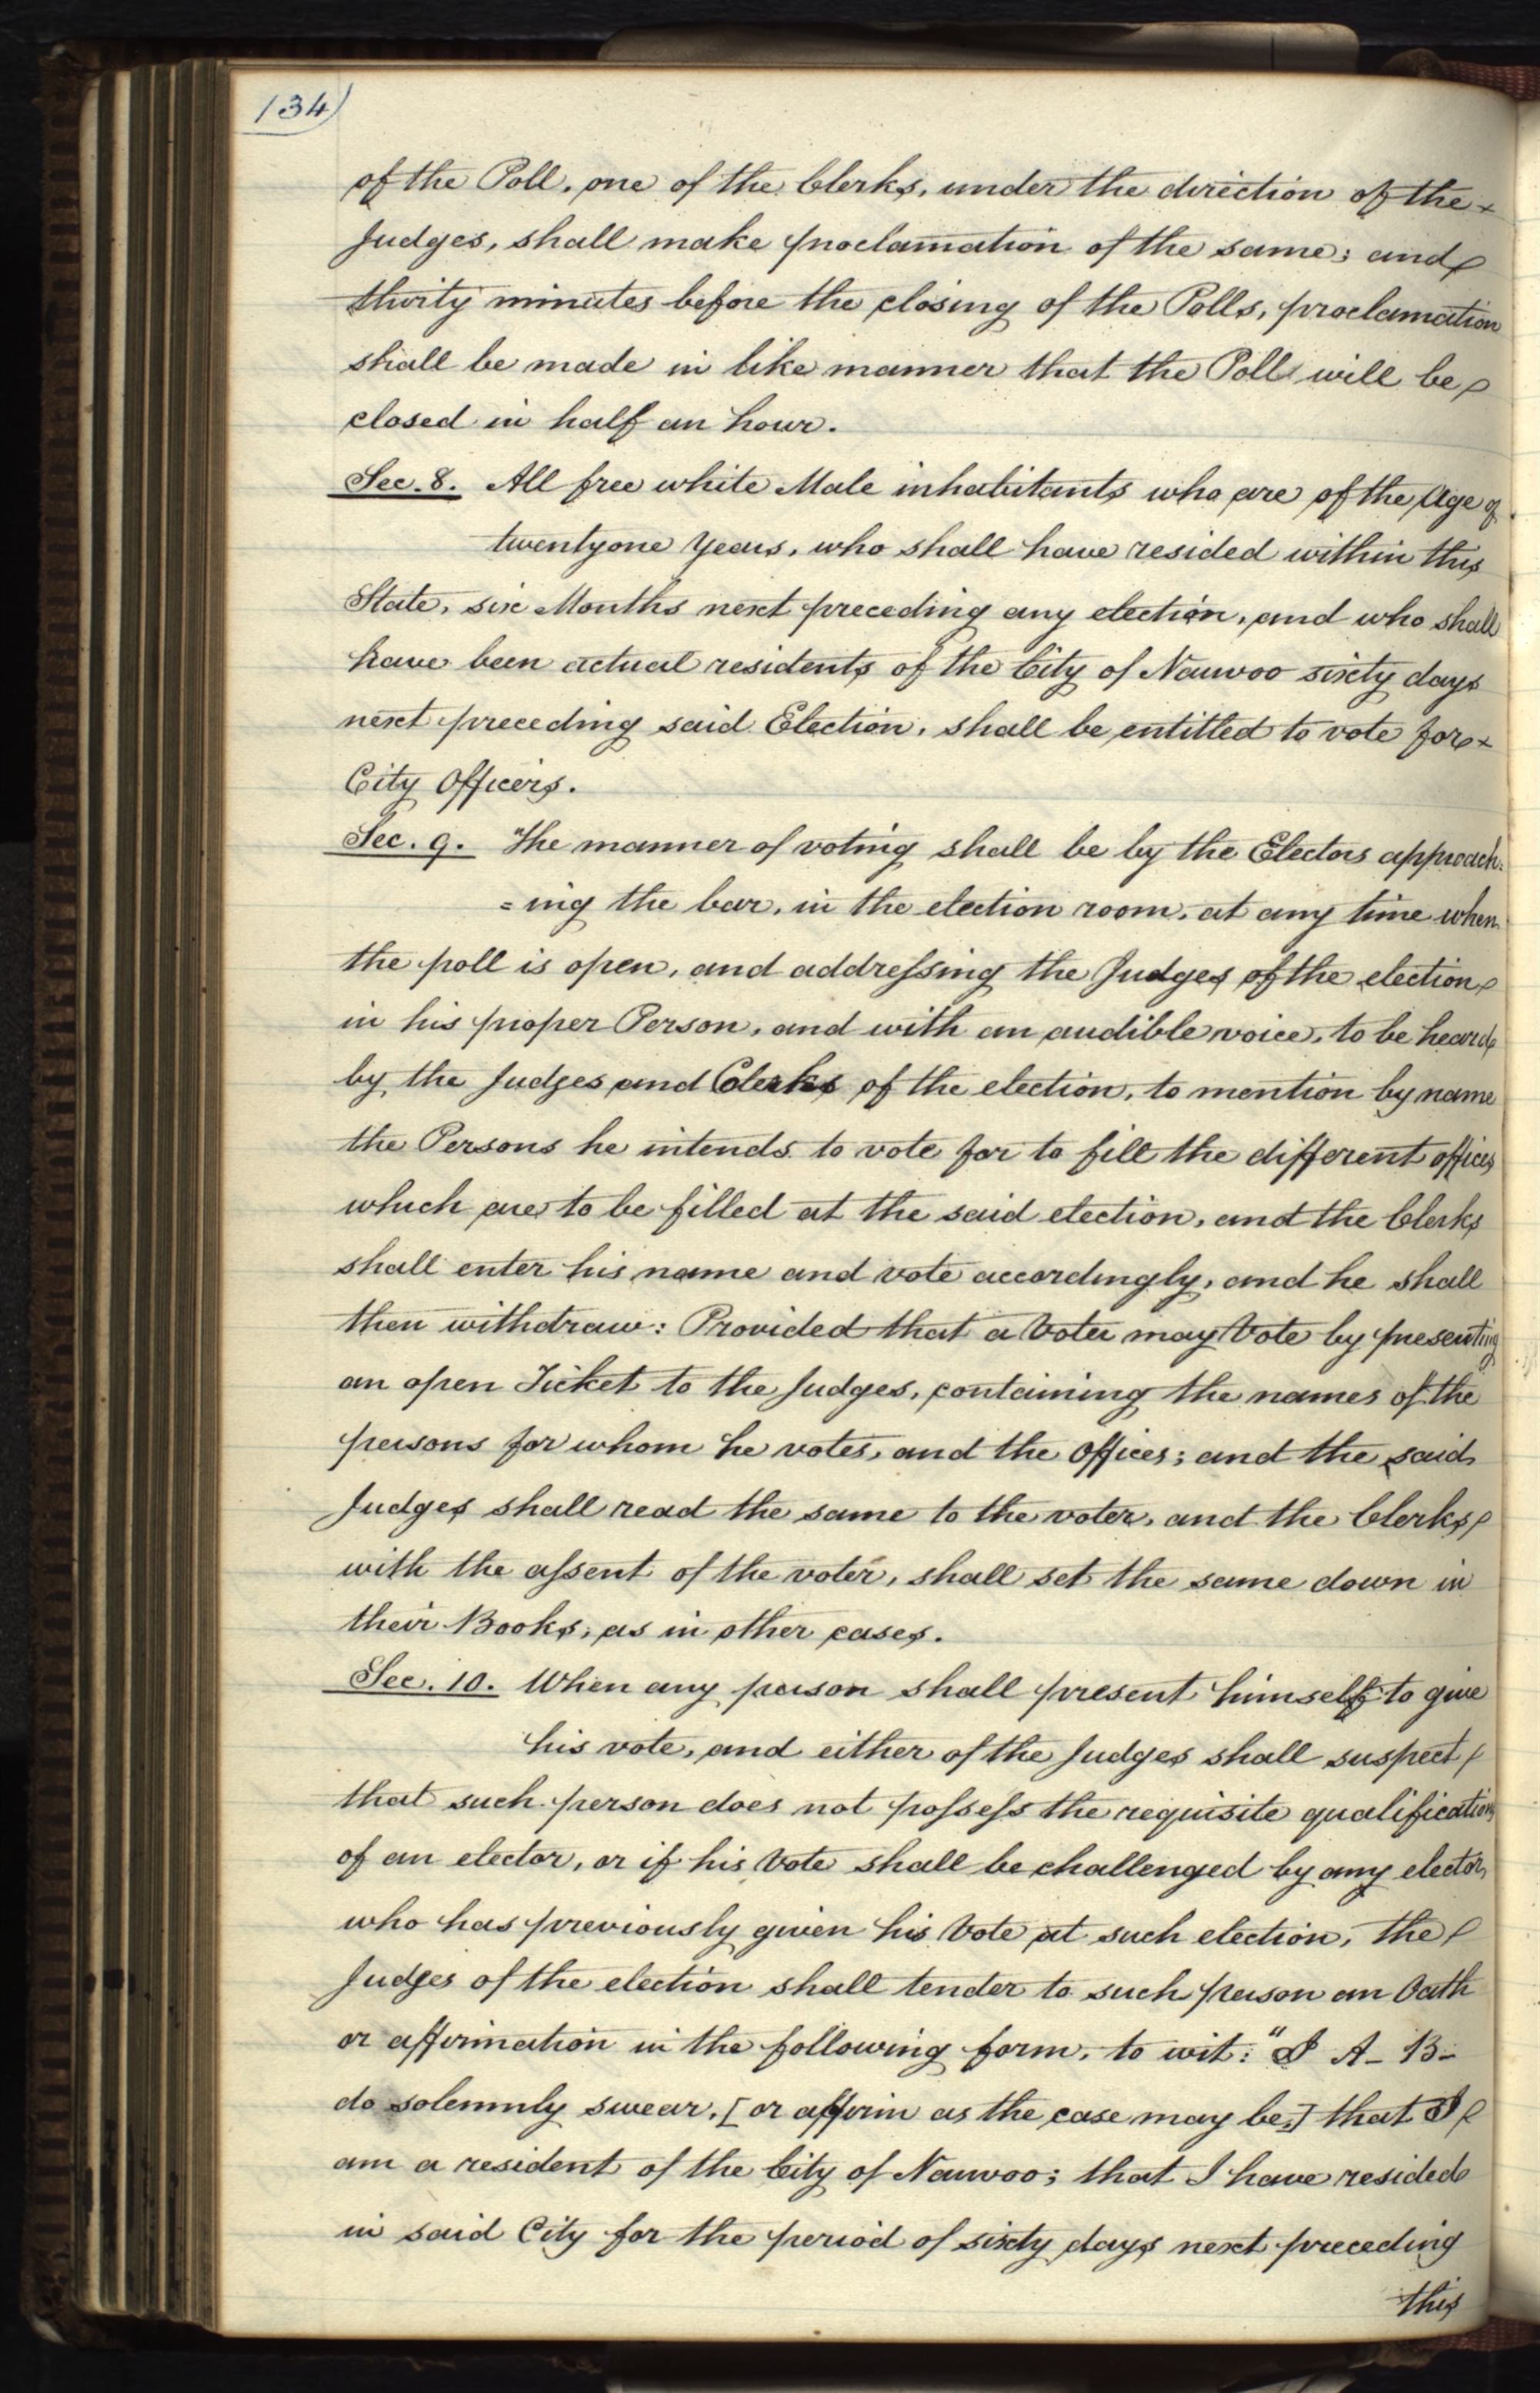 134)
of the Poll, one of the Clerks, under the direction of the
Judges, shall make proclamation of the same; and
thirty minutes before the closing of the Polls, proclamation
shall be made in like manner that the Polls will be
closed in half an hour.
Sec. 8. All free white Male inhabitants who are of the Age of
twentyone Years, who shall have resided within this
State, six Months next preceding any election, and who shall
have been actual residents of the City of Nauvoo sixty days
next preceding said Election, shall be entitled to vote for
City Officers.
Sec. 9. The manner of voting shall be by the Electors approach=
=ing the bar, in the election room, at any time when
the poll is open, and addressing the Judges of the election
in his proper Person, and with an audible voice, to be heard
by the Judges and Clerks of the election, to mention by name
the Persons he intends to vote for to fill the different offices
which are to be filled at the said election, and the Clerks
shall enter his name and vote accordingly, and he shall
then withdraw: Provided that a Voter may Vote by presenting
an open Ticket to the Judges, containing the names of the
persons for whom he votes, and the Offices; and the said
Judges shall read the same to the voter, and the Clerks,
with the assent of the voter, shall set the same down in
their Books, as in other cases.
Sec. 10. When any person shall present himself to give
his vote, and either of the Judges shall suspect
that such person does not possess the requisite qualifications
of an elector, or if his Vote shall be challenged by any elector,
who has previously given his Vote at such election, the
Judges of the election shall tender to such person an Oath
or affirmation in the following form, to wit: "I A– B–
do solemnly swear, [or affirm as the case may be,] that I
am a resident of the City of Nauvoo; that I have resided
in said City for the period of sixty days next preceding
this